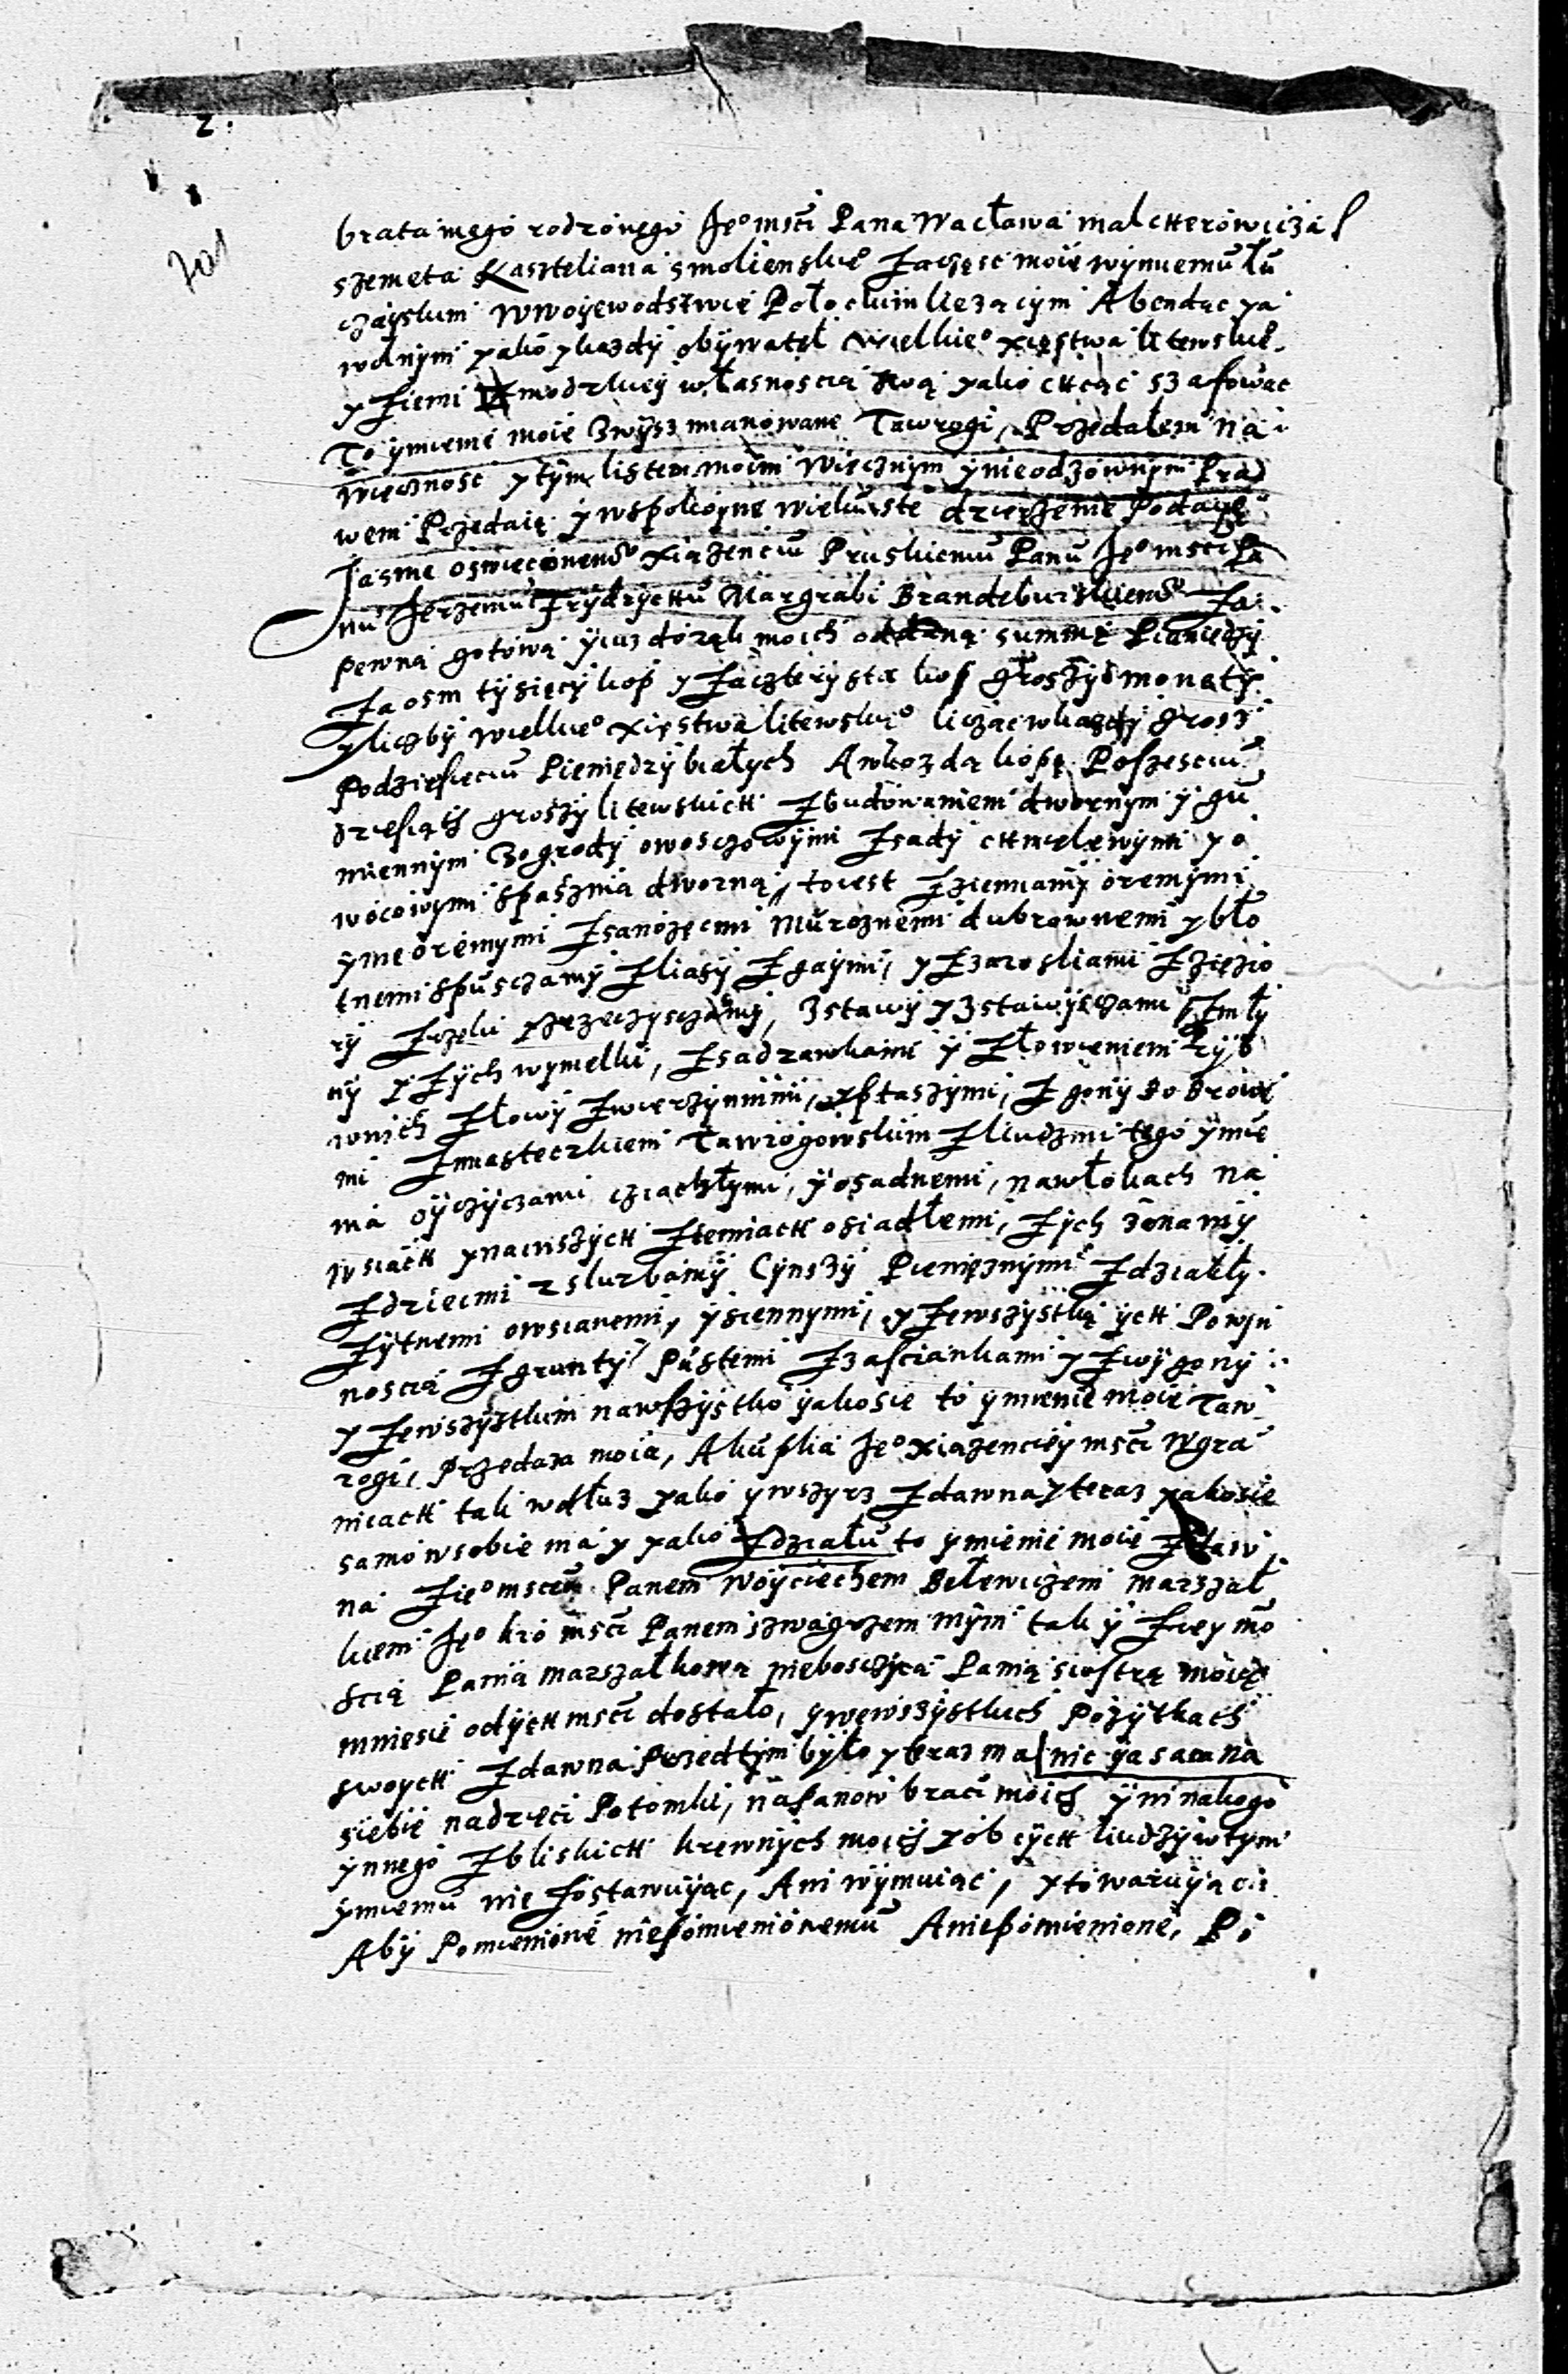 2.
brata mego rodzonego Jeo msci Pana Wacława malcherowicza
szemeta Kaszteliana smolienskieo za część moię wymieniu łu
czayskim w woyewodstwie Połockim liezącym A bendąc ya
wolnym yako y każdy obywatel wielkieo xięstwa litewskieo
y ziemi zmodzkiey własnoscią swą yako chcąc szafowac
To ymienie moie zwysz mianowane Tawrogi, Przedałem na
wieczność y tym listem moim wiecznym y nieodzownym Pra
wem Przedaię y w spokoyne wiekuiste dzierżenie Podaye
Jasnie oswieconemu xiązenciu Pruskiemu Panu Jeo msci Pa
nu Jerzemu Frydrychu Margrabi Brandeburskiemu Za
pewną gotową y iuz do rąk moich oddaną summę Pieniędzy
Za osm tysięcy kop y za czterysta kop groszy monety
y liczby wielkieo xięstwa litewskieo licząc w każdy grosz
Po dziesięciu Pieniędzy białych A w kozdą kopę Po szesciu
dziesiąth groszy litewskich Z budowaniem dwornym y gu
miennym Z ogrody owosczowymi Z sady chmielewymi y o
wocowymi s pasznią dworną, to iest Z ziemiamy oremymi
y nie oremymi Z sanozęcmi Muroznemi dubrownemi y bło
tnemi s pusczamy Z liasy Z gaymi, y Z zarosliami Z iezio
ry Z rzeki y rzeczysczamy, Z stawy y Z stawyszczami Z mły
ny y Z ych wymelki, Z sadzawkami y Z łowieniem ryb
w nich Z łowy Zwierzynnimi, y ptaszymi, Z gony bobrowe
mi Z miasteczkiem Tawrogowskim Z liudzmi tego ymie
nia oyczyczami cziachłymi, y osadnemi, na włokach na
wsiach y na inszych Ziemiach osiadłemi, Z ych zonamy
Z dziecmi z sluzbamy Cynszy Pienięznymi Z dziakły
Zytnemi owsianemi, y siennymi, y Ze wszystką ych Powin
noscią Z grunty Pustemi Z zascziankami y Z wygony
y Ze wszystkim nawszystko yako sie to ymienie moie Taw
rogi, Przedaza moia, A kuplia Jeo xiązenciey msci w gra
nicach tak w dłuz yako y w szyrz Z dawna y teraz yako sie
samo w sobie ma y yako Z działu to ymienie moie Z Paw
na Z ieo mscią Panem Woyciechem Bełewiczem marszał
kiem Jeo kro msci Panem szwagrzem mym tak y Z iey mo
scią Panią marszałkową nieboszczycą Panią siostrą moię
mnie sie od ych msci dostało, y we wszystkich Pożytkach
swoych Z dawna Przed tym było y teraz ma nic ya sam na
siebie na dzieci Potomki, na Panow braci moich y ni na kogo
ynnego Z bliskich krewnych moich y obcych liudzi w tym
ymieniu nie Zostawuyąc, Ani wymuiąc, y to waruyąc
Aby Pomienione niepomienionemu A niepomienione, Po